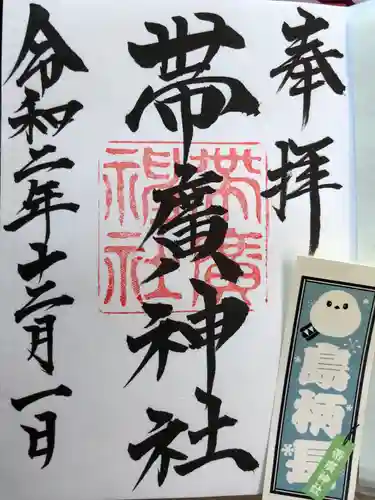 奉拝
帯廣神社
帯廣神社
令和二年十二月一日
島柄長
帯廣神社